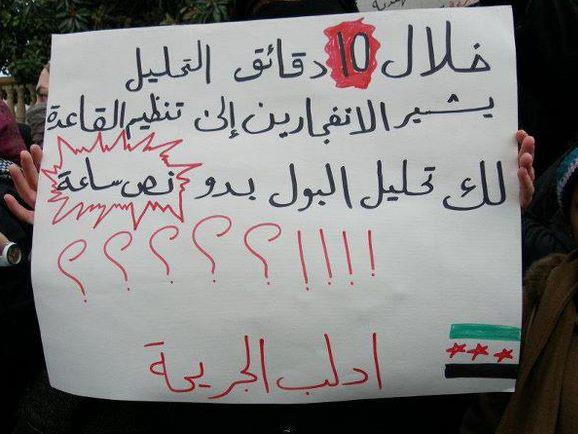 خلال 10 دقائق التحليل
يشير الانفجارين إلى تنظيم القاعدة
لك تحليل البول بدو نص ساعة
!!!!؟؟؟؟؟
ادلب الجريحة